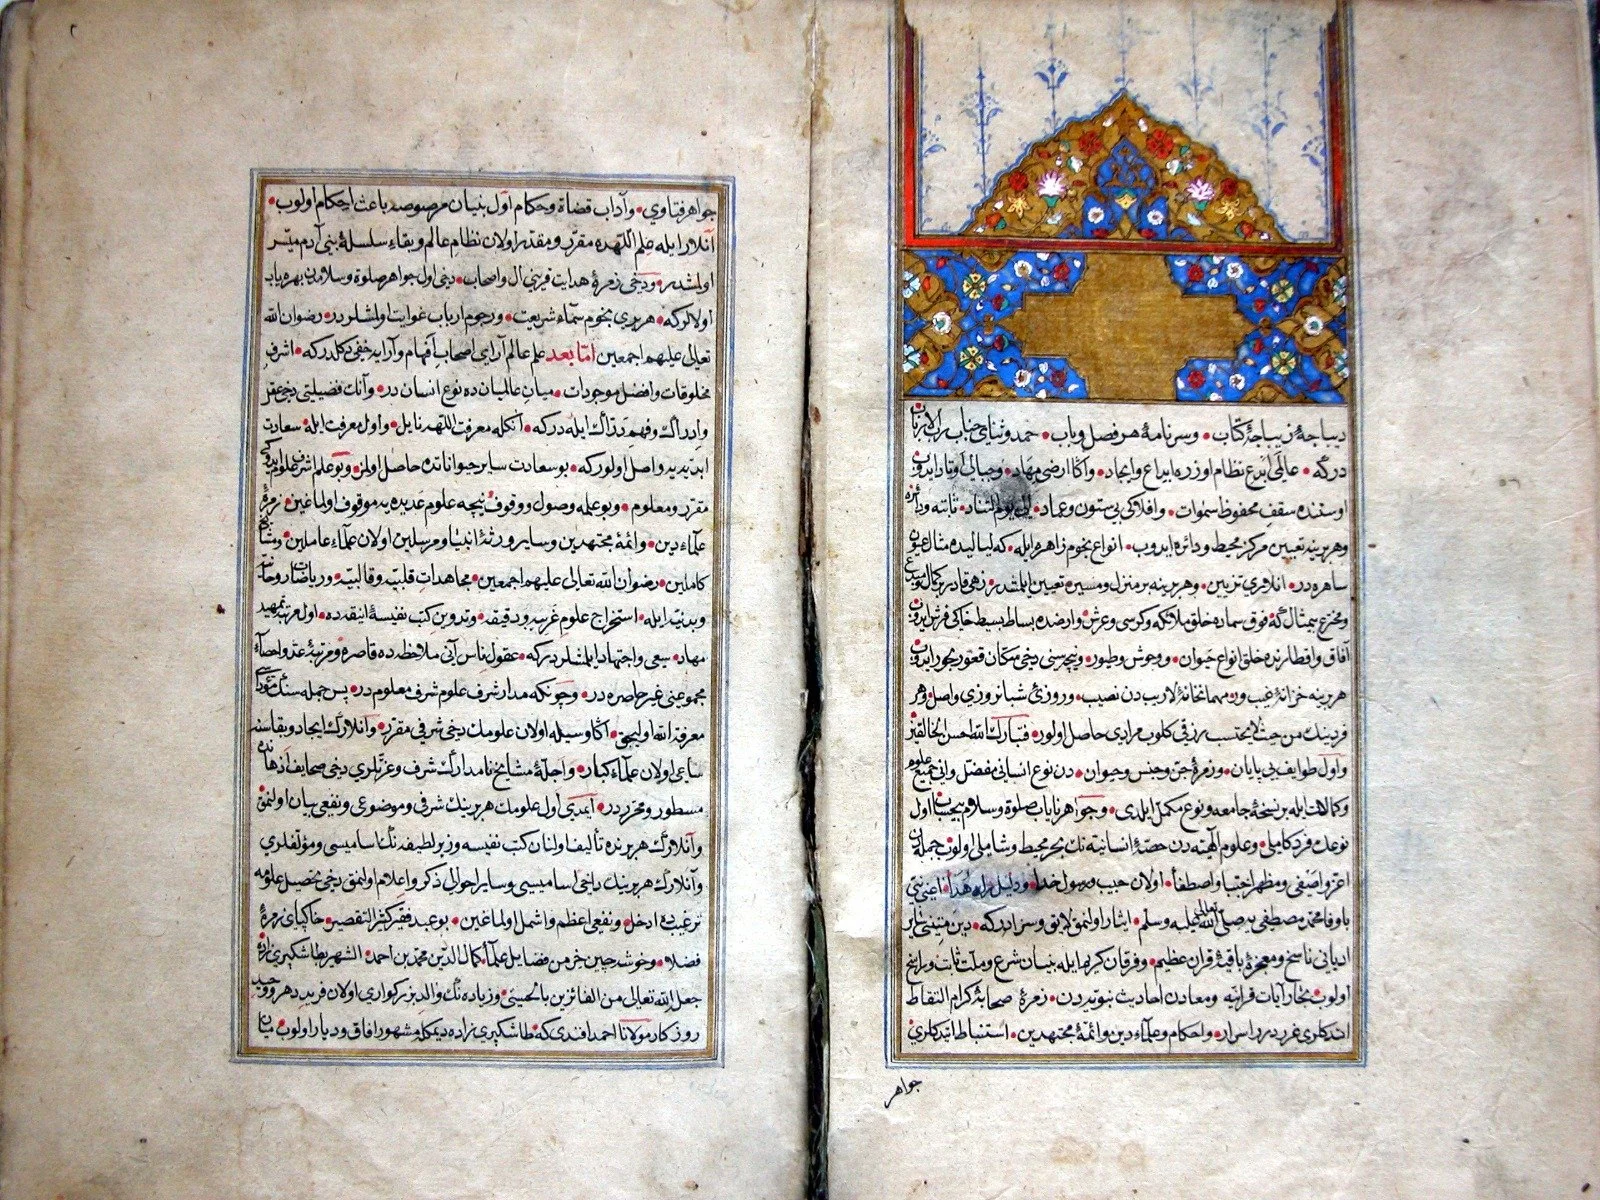 ديباجهٔ زيباجهٔ كتاب • وسرنامهٔ هر فصل وباب • حمد وثناي جناب رب الارباب
دركه • عالمى ابدع نظام اوزره ابداع وايجاد • واكا ارضى مهاد • وجبالى اوتاد ايدوب
اوستنده سقف محفوظ سموات • وافلاكى بى ستون وعماد • الى يوم التناد • ثابته ودائره
وهر برينه تعيين مركز محيط ودائره ايدوب • انواع نجوم زاهره ايله • كه ليالیده مثال عيون
ساهره در • انلارى تزيين • وهر برينه بر منزل ومسيره تعيين ايلمشدر • زهى قادر بركمال ومبدع
ومخترع بيمثال كه فوق سماده خلق ملائكه وكرسى وعرش وارضده بساط بسيط خاكى فرش ايدوب
آفاق واقطارنده خلق انواع حيوان • ووحوش وطيور • ونيچه سنى دخى مكان قعور بحور ايدوب
هر برينه خزانهٔ غيب ومهمانخانهٔ لاريب دن نصيب • وروزئ شبانروزى واصل • وهر
فردينك من حيث لايحتسب رزقى كلوب مرادى حاصل اولور • فتبارك الله احسن الخالقين
واول طوايف بى پايان • وزمرهٔ جن وجنس وحيوان • دن نوع انسانى مفضل وانى جميع علوم
وكمالات ايله بر نسخهٔ جامعه ونوع مكمل ايلدى • وجواهر ناياب صلوة وسلام بيحساب اول
نوعك فرد كاملى • وعلوم الهيه دن حصهٔ انسانيه نك بحر محيط وشاملى اولوب جمله دن
اعز واصفى ومظهر اجتبا واصطفا • اولان حبيب ورسول خدا • ودليل راه هدا • اعنى نبى
با وفا محمد مصطفى يه صلى الله تعالى عليه وسلم • ايثار اولنمق لايق وسزادركه • دين متينى ساير
اديانى ناسخ ومعجزهٔ باقيهٔ قرآن عظيم • وفرقان كريم ايله بنيان شرع وملت ثابت وراسخ
اولوب • بحار آيات قرآنيه ومعادن احاديث نبويه دن • زمرهٔ صحابهٔ كرام التقاط
اتدكلرى غرر درر اسرار • واحكام وعلماء دين وائمهٔ مجتهدين • استنباط ايتدكلرى
جواهر
جواهر فتاوى • وآداب قضاة وحكام اول بنيان مرصوصه باعث احكام اولوب •
آنلار ايله علم اللهده مقرر ومقدر اولان نظام عالم وبقاء سلسلهٔ بنى آدم ميسر
اولمشدر • ودخى زمرهٔ هدايت قرينى آل واصحاب • دخى اول جواهر صلوة وسلامدن بهره ياب
اولالركه • هر برى نجوم سماء شريعت • ورجوم ارباب غوايت اولمشلردر • رضوان الله
تعالى عليهم اجمعين اما بعد علم عالم آراى اصحاب افهام وآرايه خفى دكلدركه • اشرف
مخلوقات وافضل موجودات • ميان عالميان ده نوع انسان در • وآنك فضيلتى دخى عقل
وادراك وفهم دراك ايله دركه • آنكله معرفت اللهه نايل • واول معرفت ايله سعادت
ابديه يه واصل اولوركه • بو سعادت ساير حيواناتده حاصل اولمز • وبو علم اشرف علوم ايدوكى
مقرر ومعلوم • وبو علمه وصول ووقوف نيچه علوم عديده يه موقوف اولماغين • زمرهٔ
علماء دين • وائمهٔ مجتهدين وساير ورثهٔ انبيا ومرسلين اولان علماء عاملين • ومشايخ
كاملين • رضوان الله تعالى عليهم اجمعين • مجاهدات قلبيه وقالبيه • ورياضات روحانيه
وبدنيه ايله • استخراج علوم غريبه ودقيقه • وتدوين كتب نفيسهٔ انيقه ده • اول مرتبه تمهيد
مهاد • سعى واجتهاد ايلمشلردركه • عقول ناس آنى ملاحظه ده قاصره ومرتبهٔ عد واحصاء
مجموعنى غير حاصره در • وچونكه مدار شرف علوم شرف معلوم در • پس جمله سنك
معرفة الله اوليجق • اكا وسيله اولان علومك دخى شرفى مقرر • وآنلارك ايجاد وبقاسنه
ساعى اولان علماء كبار • واجلهٔ مشايخ نامدارك شرف وعزتلرى دخى صحايف اذهانده
مسطور ومحرردر • ايمدى اول علومك هر برينك شرفى وموضوعى ونفعى بيان اولنمق
وآنلارك هر برنده تأليف اولنان كتب نفيسه وزبر لطيفه نك اساميسى ومؤلفلرى
وآنلارك هر برينك تاريخى اساميسى وساير احوالى ذكر واعلام اولنمق دخى تحصيل علومه
ترغيبده ادخل • ونفعى اعظم واشمل اولماغين • بو عبد فقير كثير التقصير • خاكپاى زمرهٔ
فضلا • وخوشه چين خرمن فضايل علما • كمال الدين محمد بن احمد • الشهير بطاشكپرى زاده
جعله الله تعالى من الفائزين بالحسنى • وزياده نك والد بزركوارى اولان فريد دهر ووحيد
روزكار مولانا احمد افندى كه • طاشكپرى زاده ديمكله مشهور آفاق وديار اولوب • ميان